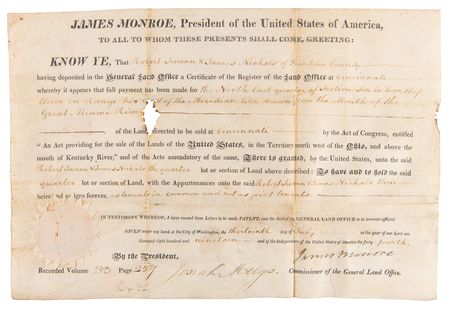 JAMES MONROE, President of the United States of America,
TO ALL TO WHOM THESE PRESENTS SHALL COME, GREETING:
KNOW YE, That Robert Swann & James Nichols of Franklin County
having deposited in the General Land Office a Certificate of the Register of the Land Office at Cincinnati
whereby it appears that full payment has been made for the North East quarter of Section six in Township
Eleven in Range two of the Meridian line drawn from the Mouth of the
Great Miami River
of the Land directed to be sold at Cincinnati by the Act of Congress, entitled
"An Act providing for the sale of the Lands of the United States, in the Territory north west of the Ohio, and above the
mouth of Kentucky River," and of the Acts amendatory of the same, There is granted, by the United States, unto the said
Robert Swann & James Nichols the quarter lot or section of Land above described: To have and to hold the said
quarter lot or section of Land, with the Appurtenances unto the said Robert Swann & James Nichols their
heirs and assigns forever, as tenants in common and not as joint tenants.
IN TESTIMONY WHEREOF, I have caused these Letters to be made PATENT, and the Seal of the GENERAL LAND OFFICE to be hereunto affixed.
GIVEN under my hand at the City of Washington, the thirteenth day of July in the year of our Lord one
thousand eight hundred and nineteen and of the Independence of the United States of America the forty fourth.
By the President, James Monroe
Josiah Meigs Commissioner of the General Land Office.
Recorded Volume 33 Page 259